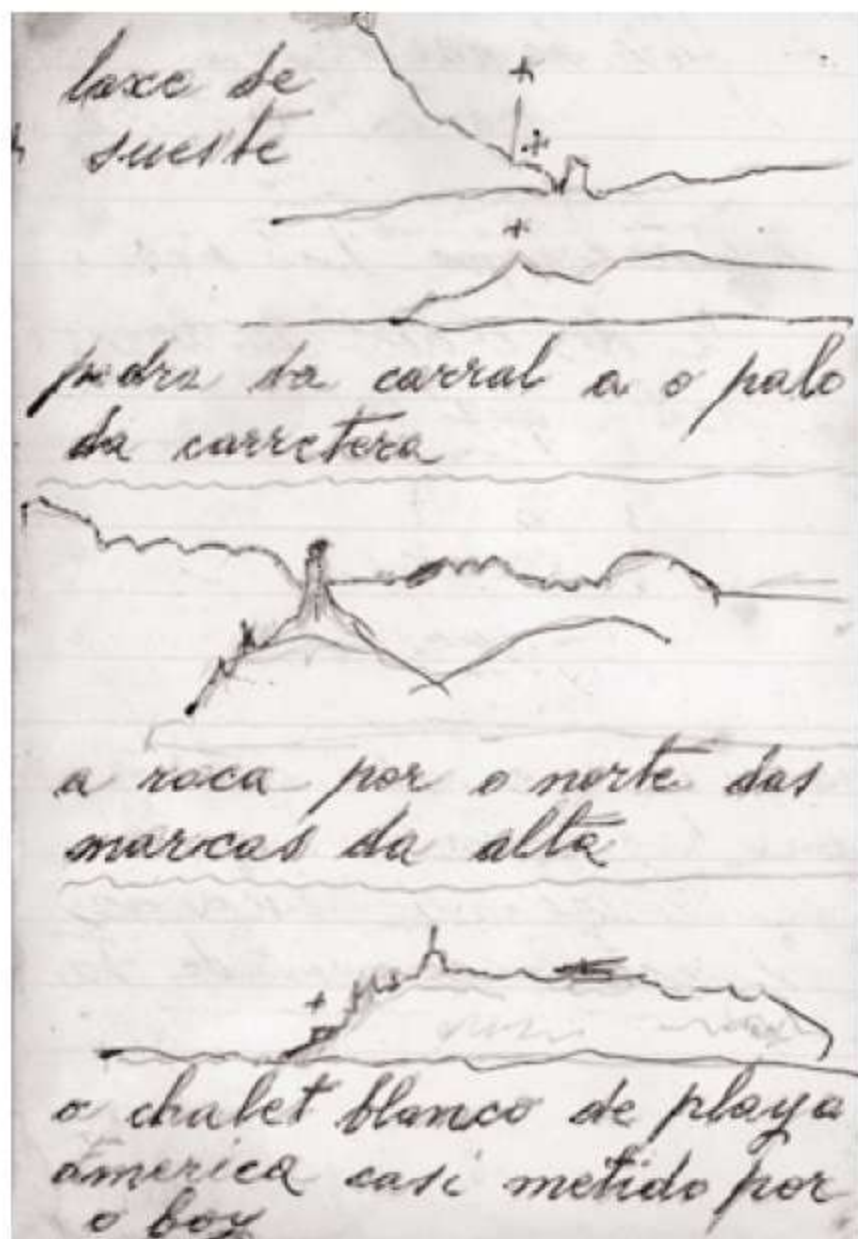 laxe de
sueste
pedra da carral a o palo
da carretera
a roca por o norte das
marcas da alta
o chalet blanco de playa
america casi metido por
o boy